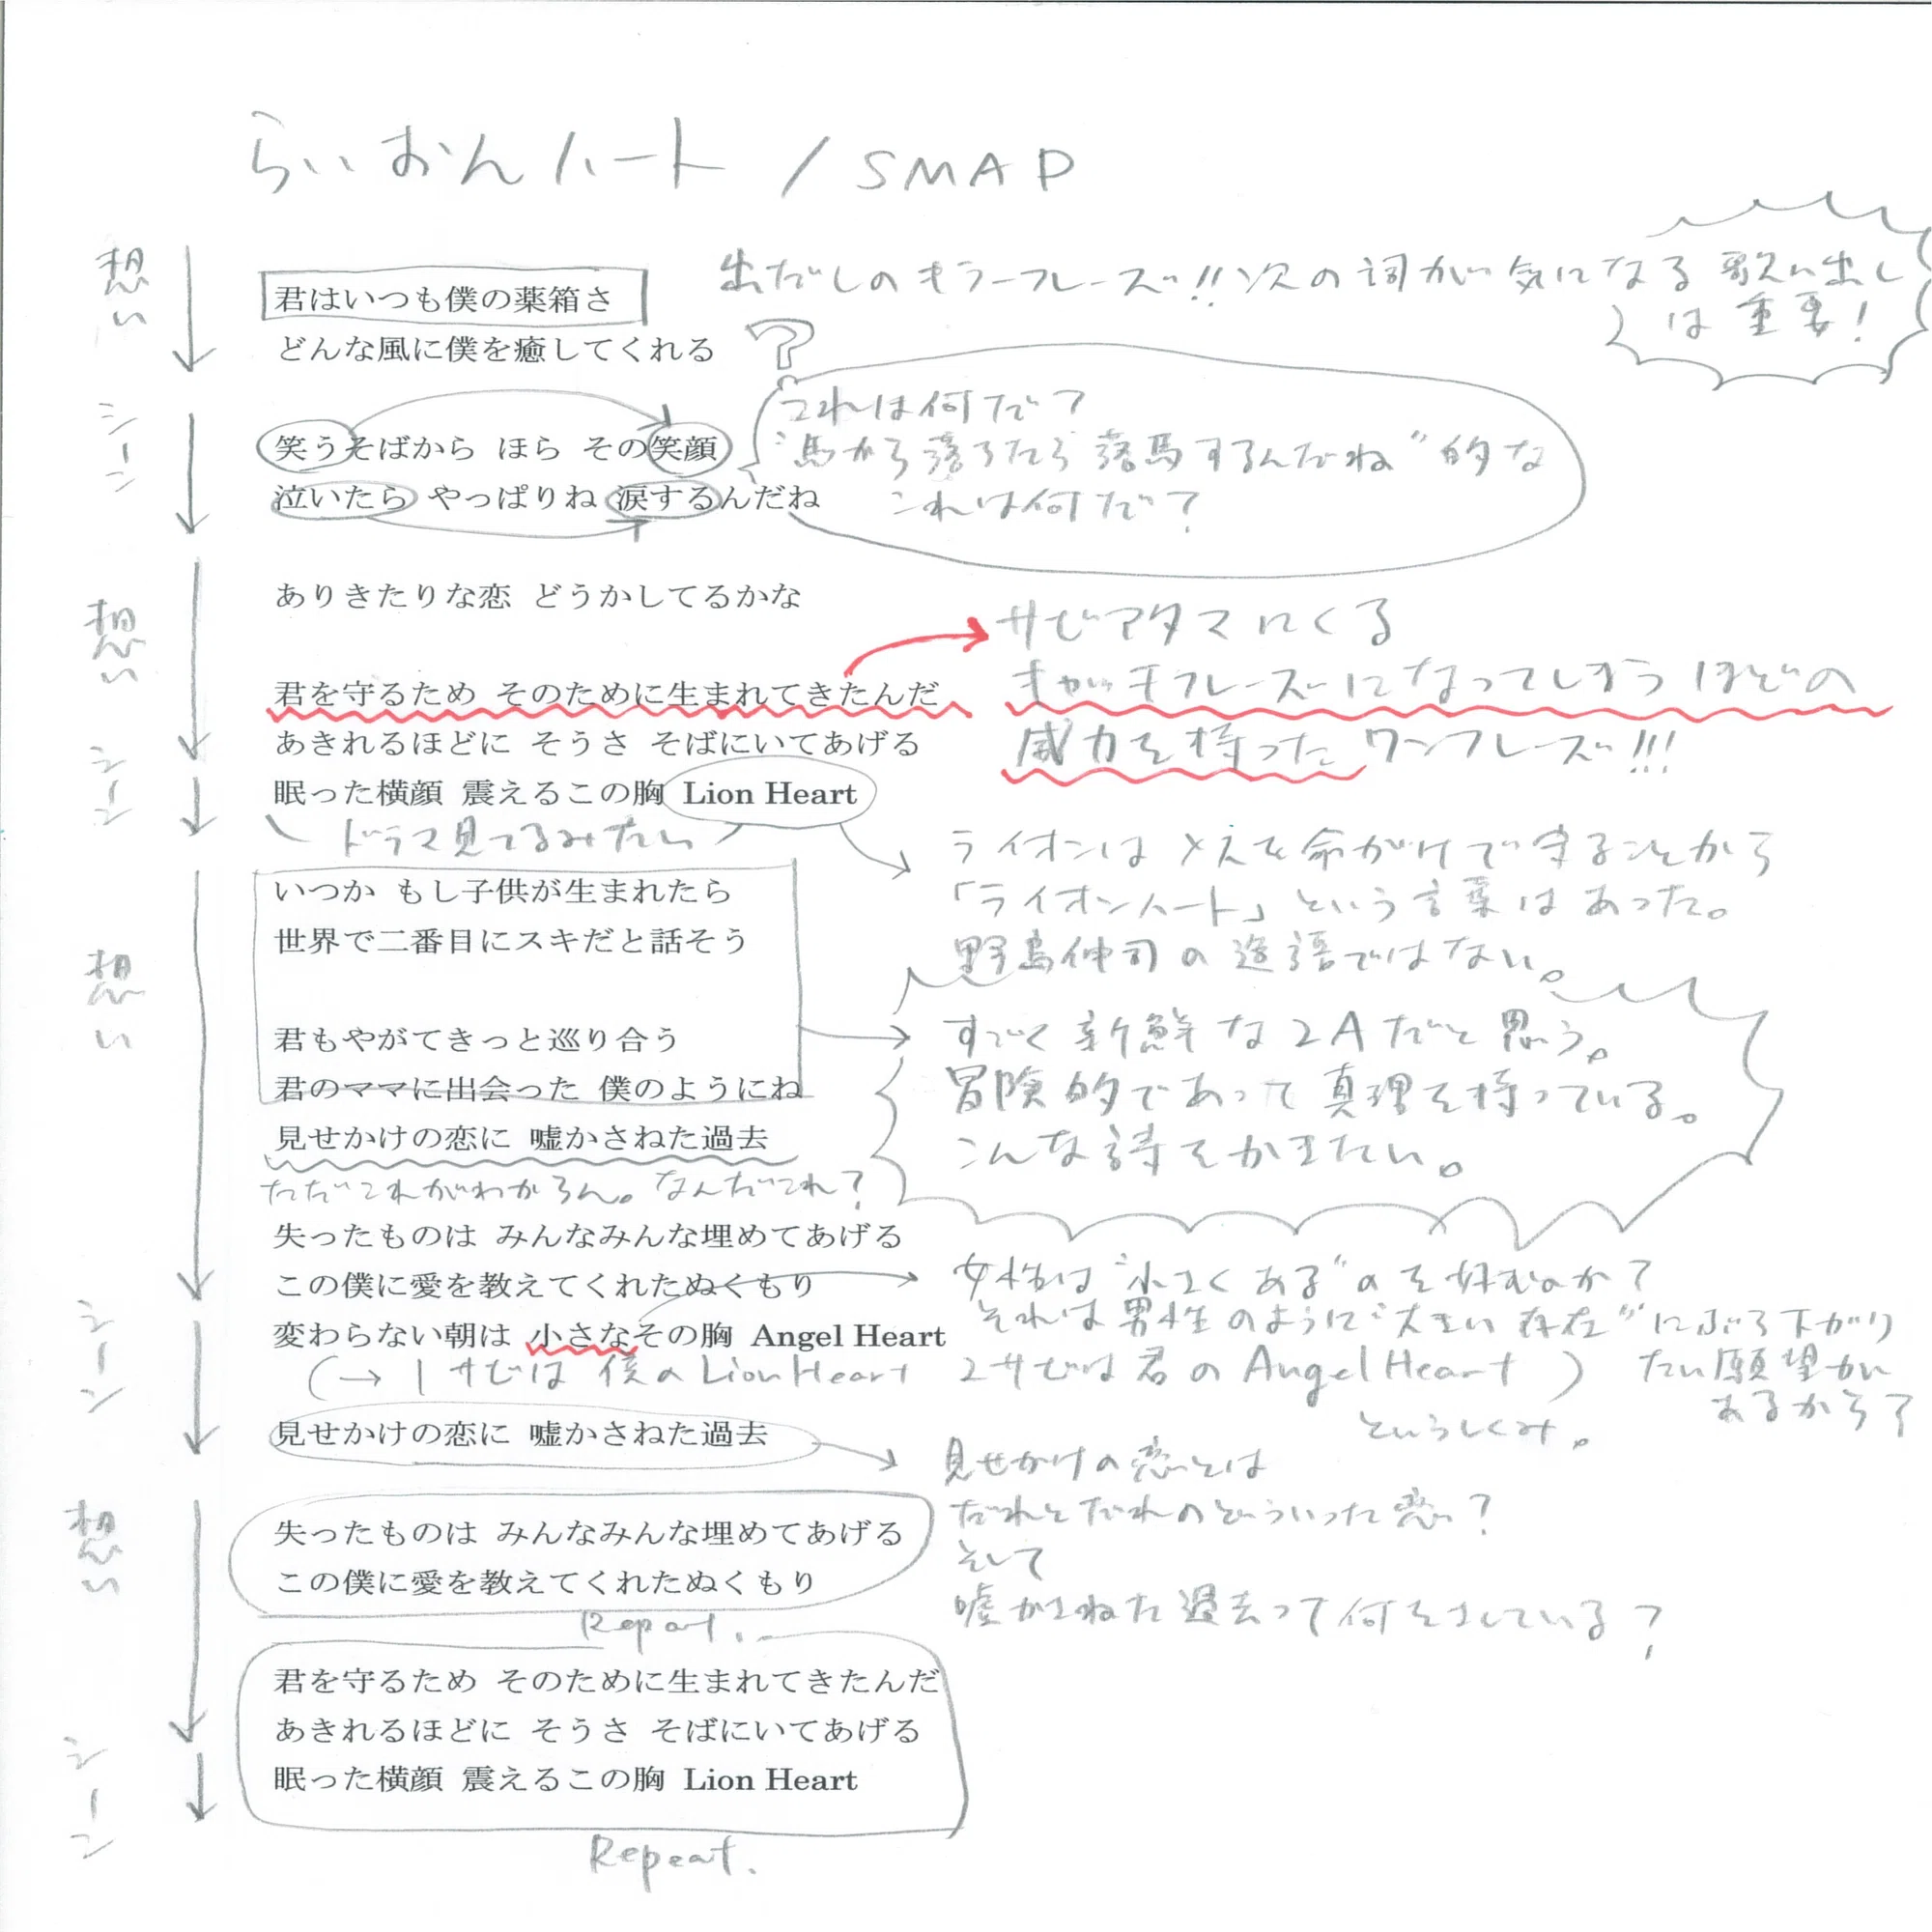 らいおんハート / SMAP
想い
君はいつも僕の薬箱さ
出だしのキラーフレーズ!!次の詞が気になる歌い出し
は重要!
どんな風に僕を癒してくれる
?
シーン
これは何だ?
笑うそばから ほら その笑顔
"馬から落ちたら落馬するんだね"的な
泣いたら やっぱりね 涙するんだね
これは何だ?
想い
ありきたりな恋 どうかしてるかな
サビアタマにくる
君を守るため そのために生まれてきたんだ
キャッチフレーズになってしまうほどの
あきれるほどに そうさ そばにいてあげる
威力を持ったワンフレーズ!!!
シーン
眠った横顔 震えるこの胸 Lion Heart
ドラマ見てるみたい
ライオンは を命がけで守ることから
いつか もし子供が生まれたら
「ライオンハート」という言葉はあった。
世界で二番目にスキだと話そう
野島伸司の造語ではない。
想い
君もやがてきっと巡り合う
すごく新鮮な2Aだと思う。
君のママに出会った 僕のようにね
冒険的であって真理を持っている。
見せかけの恋に 嘘かさねた過去
こんな詩をかきたい。
ただこれがわからん。なんだこれ?
失ったものは みんなみんな埋めてあげる
この僕に愛を教えてくれたぬくもり
女性は"小さくある"のを好むのか?
シーン
それは男性のように"大きい存在"にぶら下がり
変わらない朝は 小さなその胸 Angel Heart
たい願望が
あるから?
(→1サビは僕のLion Heart 2サビは君のAngel Heart)
というしくみ。
見せかけの恋に 嘘かさねた過去
見せかけの恋とは
だれとだれのどういった恋?
そして
嘘かさねた過去って何をさしている?
想い
失ったものは みんなみんな埋めてあげる
この僕に愛を教えてくれたぬくもり
Repeat.
君を守るため そのために生まれてきたんだ
あきれるほどに そうさ そばにいてあげる
シーン
眠った横顔 震えるこの胸 Lion Heart
Repeat.